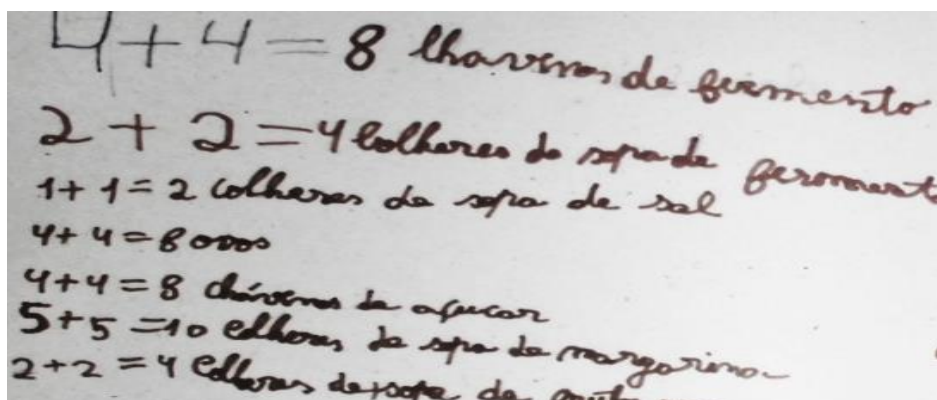 4+4=8 lhavenos de fermento
2+2=4 colheres de sopa de fermento
1+1=2 colheres de sopa de sal
4+4=8 ovos
4+4=8 chávenas de açucar
5+5=10 colheres de sopa de margarina
2+2=4 colheres de sopa de